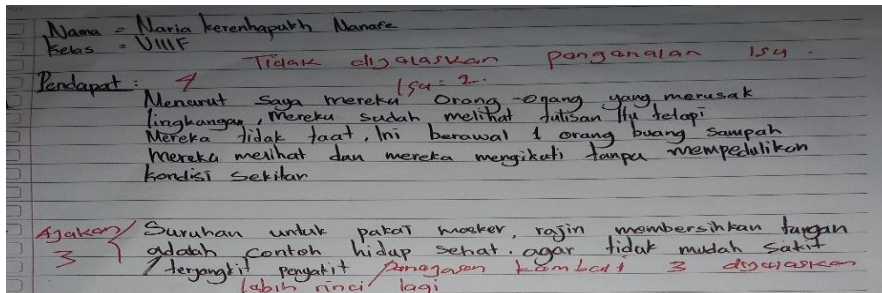 Nama = Maria kerenhapukh Nanafe
Kelas = VIIIF
Tidak dijelaskan pengenalan isu.
Pendapat : 4 Isu = 2.
Menurut saya mereka orang-orang yang merusak
lingkangan, mereka sudah melihat tulisan itu tetapi
Mereka tidak taat. Ini berawal 1 orang buang sampah
mereka melihat dan mereka mengikuti tanpa mempedulikan
kondisi sekitar
Ajakan/ Suruhan untuk pakai masker, rajin membersihkan tangan
3 adalah contoh hidup sehat. agar tidak mudah sakit
/ terjangkit penyakit penegasan kembali 3 dijelaskan
labih rinci lagi